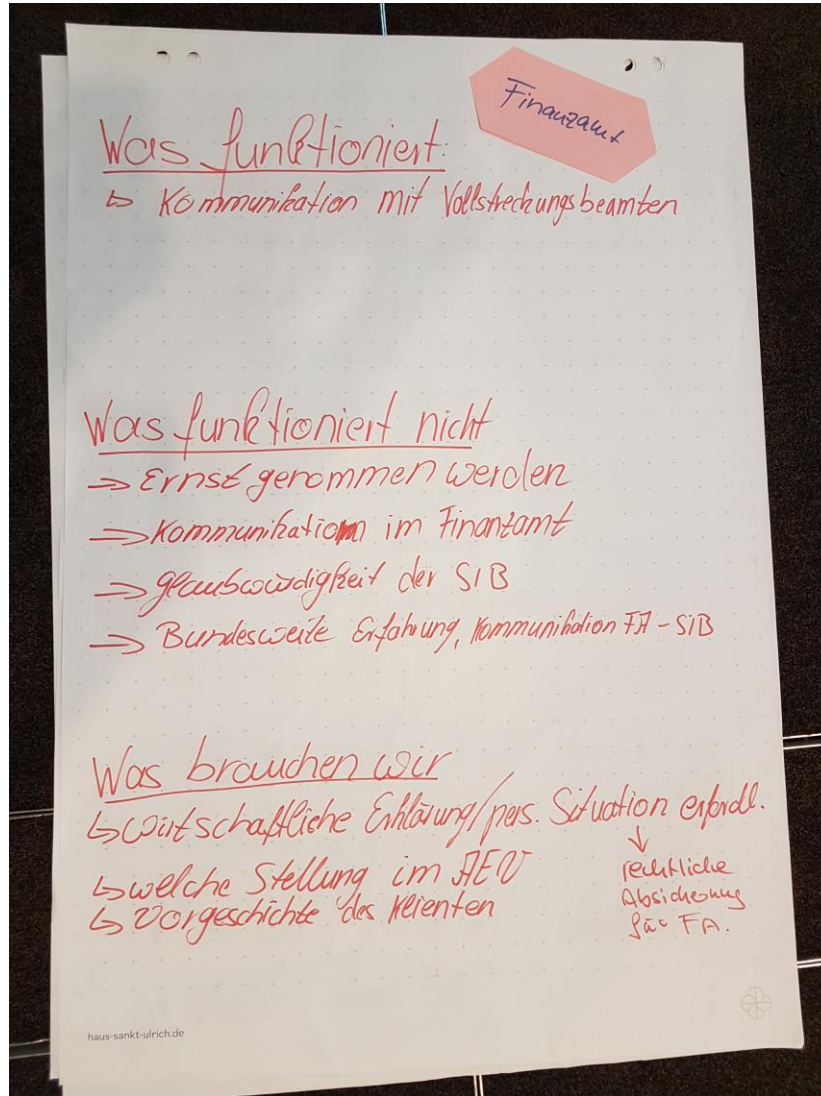 Finanzamt
Was funktioniert:
↳ Kommunikation mit Vollstreckungsbeamten
Was funktioniert nicht
→ Ernst genommen werden
→ Kommunikation im Finanzamt
→ glaubwürdigkeit der SIB
→ Bundesweite Erfahrung, Kommunikation FA - SIB
Was brauchen wir
↳ wirtschaftliche Erklärung/pers. Situation erfordl.
↓
rechtliche
Absicherung
für FA.
↳ welche Stellung im AEV
↳ Vorgeschichte des Klienten
haus-sankt-ulrich.de